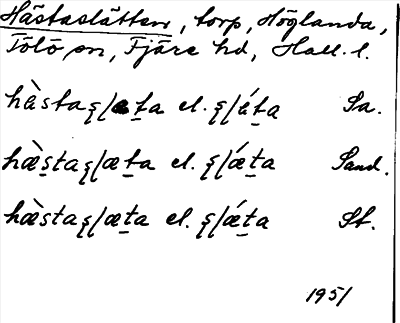 Hästaslätten, torp, Höglanda,
Tölö sn, Fjäre hd, Hall. l.
hàsta ʂlæt̲a el. ʂlǽt̲a Sa.
hæ̀s̲ta ʂlæt̲a el. ʂlǽt̲a Sand.
hæ̀sta ʂlæt̲a el. ʂlǽt̲a St.
1951